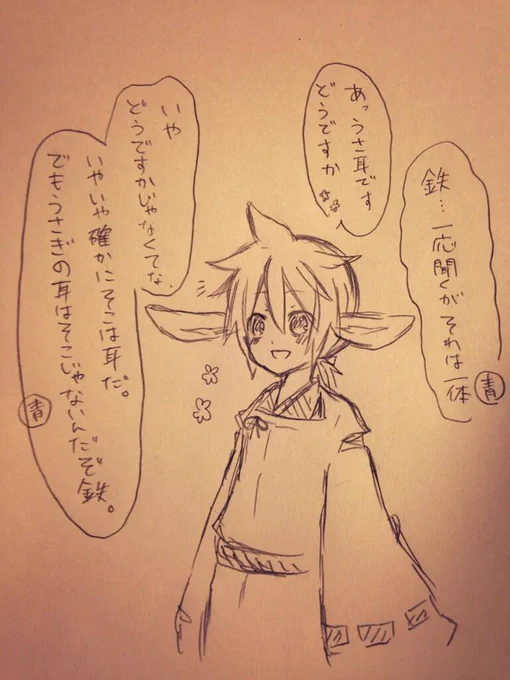 鉄…一応聞くがそれは一体
青
あっうさ耳です
どうですか
いや
どうですかじゃなくてな
いやいや確かにそこは耳だ。
でもうさぎの耳はそこじゃないんだぞ鉄。
青